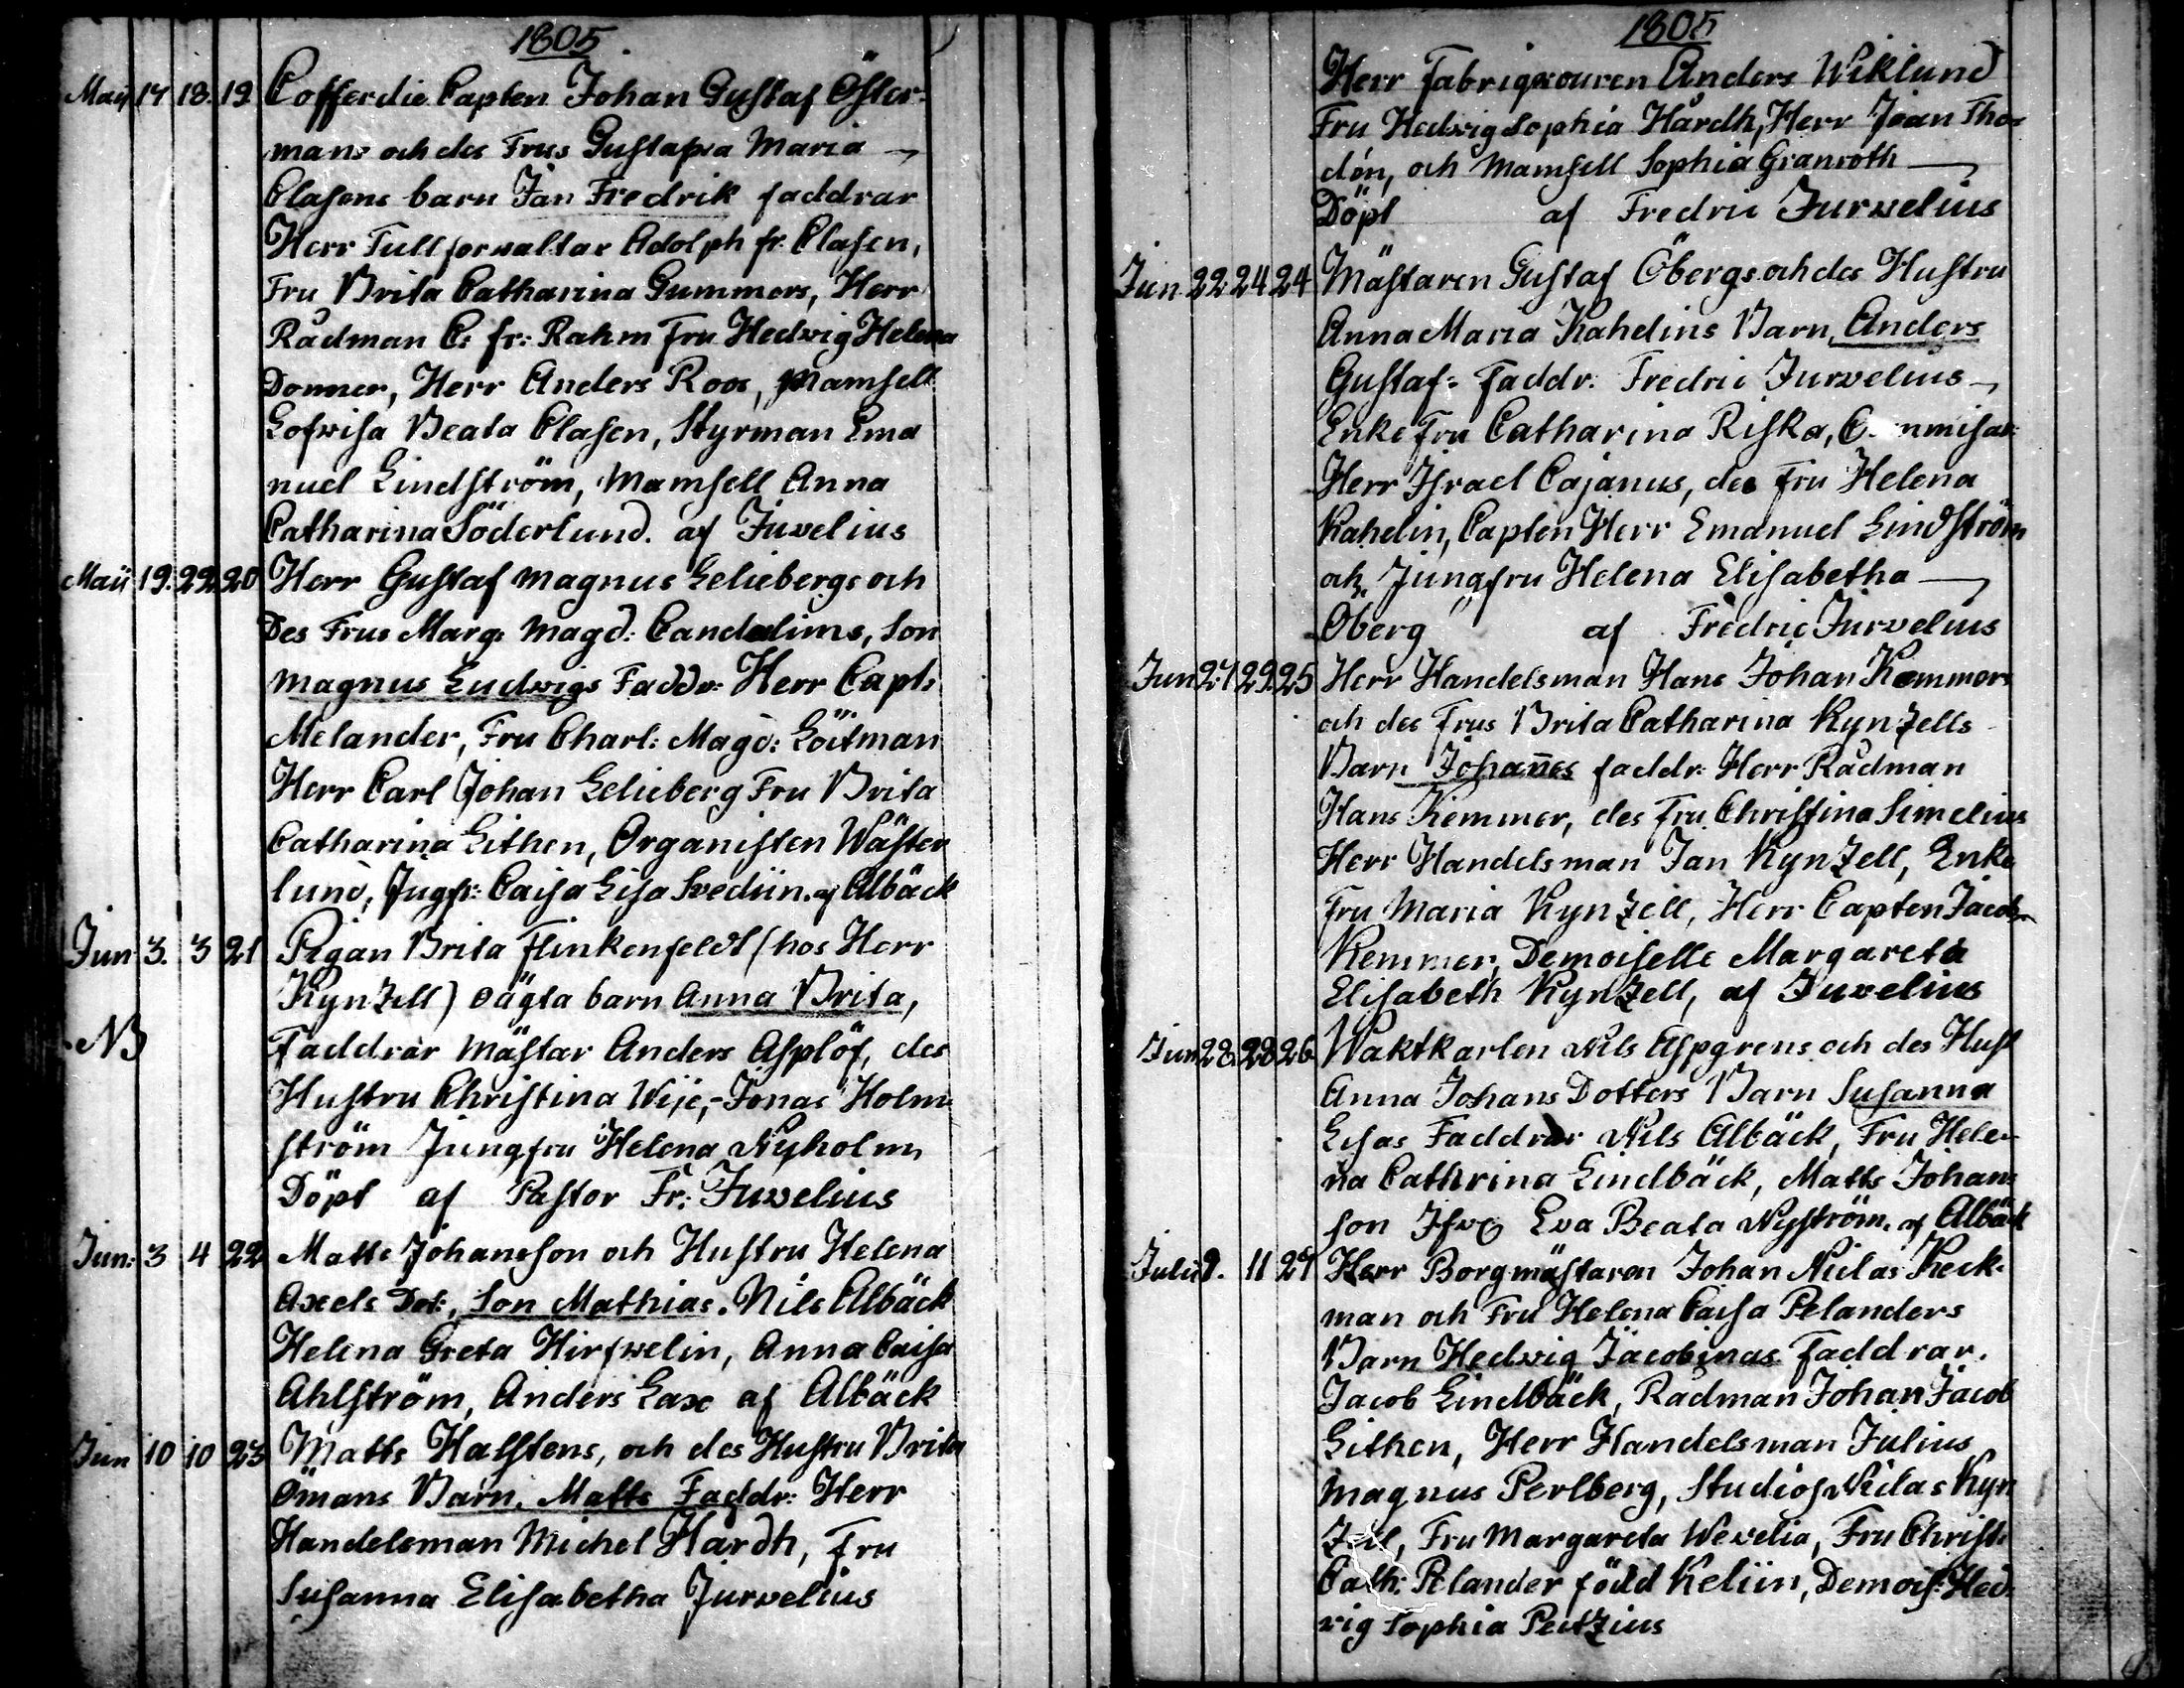 1805
Maij 17 18 19 Cofferdie Capten Johan Gustaf Öster-
mans och des Frus Gustafva Maria
Clasens barn Jan Fredrik faddrar
Herr Tullforvaltar Adolph fr: Clasen,
Fru Brita Catharina Gummers, Herr
Rådman C: fr: Rahm Fru Hedvig Helena
Donner, Herr Anders Roos, Mamsell
Lofvisa Beata Clasen, Styrman Ema
nuel Lindström, Mamsell Anna
Catharina Söderlund. af Juvelius
Maij 19. 22. 20 Herr Gustaf Magnus Leliebergs och
Des Frus Marg: Magd: Candelins, Son
Magnus Ludvigs Faddr: Herr Capt:
Melander, Fru Charl: Magd: Löitman
Herr Carl Johan Lelieberg Fru Brita
Catharina Lithen, Organisten Wäster
lund, Jugfr: Caisa Lisa Svediin. af Albäck
Jun 3. 3 21 Pigan Brita Flinkenfeldt (hos Herr
Kynzell) oägta barn Anna Brita,
NB Faddrar Mästar Anders Asplöf, des
Hustru Christina Wije, Jonas Holm-
ström Jungfru Helena Nyholm
Döpt af Pastor Fr: Juvelius
Jun: 3 4 22 Matts Johansson och Hustru Helena
Axels Dot:, Son Mathias. Nils Albäck
Helena Greta Hirfwelin, Anna Caisa
Ahlström, Anders Lax af Albäck
Jun 10 10 23 Matts Halstens, och des Hustru Brita
Ömans Barn, Matts Faddr: Herr
Handelsman Michel Hardh, Fru
Susanna Elisabetha Jurvelius
1805
Herr Anders Wiklund
Fru Hedvig Sophia Hårdh, Herr Joan Tho-
dén, och Mamsell Sophia Granroth
Döpt af Fredric Jurvelius
Jun 22 24 24 Mästaren Gustaf Öbergs och des Hustru
Anna Maria Kahelins Barn, Anders
Gustaf: Faddr: Fredric Jurvelius
Enke Fru Catharina Riska,
Herr Israel Cajanus, des Fru Helena
Kahelin, Capten Herr Emanuel Lindström
och Jungfru Helena Elisabetha
Öberg af Fredric Jurvelius
Jun 27 29 25 Herr Handelsman Hans Johan Kemmers
och des Frus Brita Catharina Kynzells
Barn Johañes faddr: Herr Rådman
Hans Kemmer, des Fru Christina Simelius
Herr Handelsman Jan Kynzell, Enke
Fru Maria Kynzell, Herr Capten Jacob
Kemmer, Demoiselle Margareta
Elisabeth Kynzell, af Juvelius
Jun 28 28 26 Waktkarlen Nils Aspgrens och des Hust
Anna Johans Dotters Barn Susanna
Lisas Faddrar Nils Albäck, Fru Hele-
na Cathrina Lindbäck, Matts Johans
son Eva Beata Nyström. af Albäck
Julii 9. 11 27 Herr Borgmästaren Johan Niclas Keck-
man och Fru Helena Caisa Pelanders
Barn Hedvig Jacobinas Faddrar.
Jacob Lindbäck, Rådman Johan Jacob
Lithen, Herr Handelsman Julius
Magnus Perlberg, Studios Niclas Kyn
zell, Fru Margareta Wevelia, Fru Christ:
Cath: Pelander född Keliin, Demois: Hed-
vig Sophia Peitzius